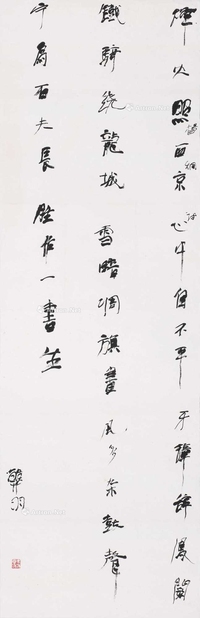 烽火照西京心中自不平牙璋辞鳳闕
鐵騎绕龍城雪暗凋旗畫風多杂鼓聲
宁為百夫長胜作一書生
羽